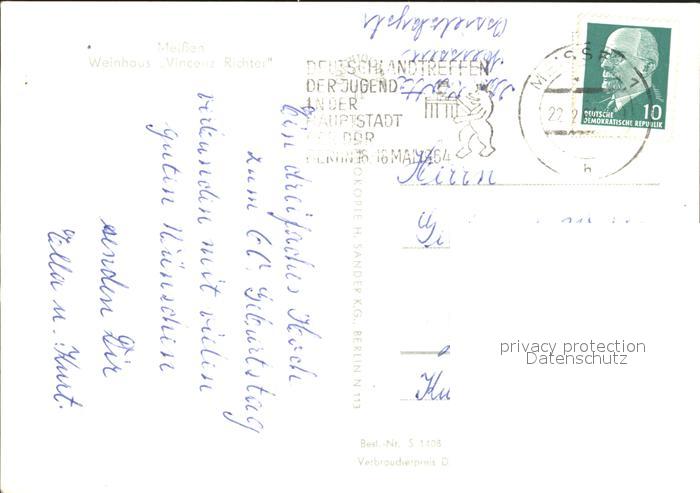 Meißen
Weinhaus „Vincenz Richter"
Ein dreifaches Hoch
zum 60. Geburtstag
verbunden mit vielen
guten Wünschen
senden Dir
Ella u. Kurt.
DEUTSCHLANDTREFFEN
DER JUGEND
IN DER
HAUPTSTADT
DER DDR
BERLIN 16.-18 MAI 1964
MEISSEN
22.2
h
10
DEUTSCHE
DEMOKRATISCHE REPUBLIK
Herrn
Gi
Ku
H. SANDER K.G., BERLIN N 113
Best.-Nr. S 1408
Verbraucherpreis D
privacy protection
Datenschutz